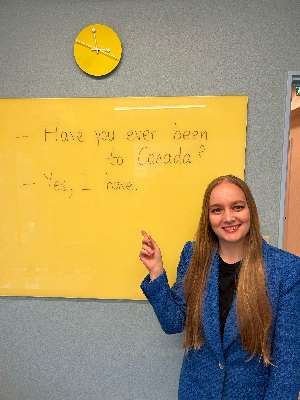 -- Have you ever been
to Canada?
-- Yes, I have.